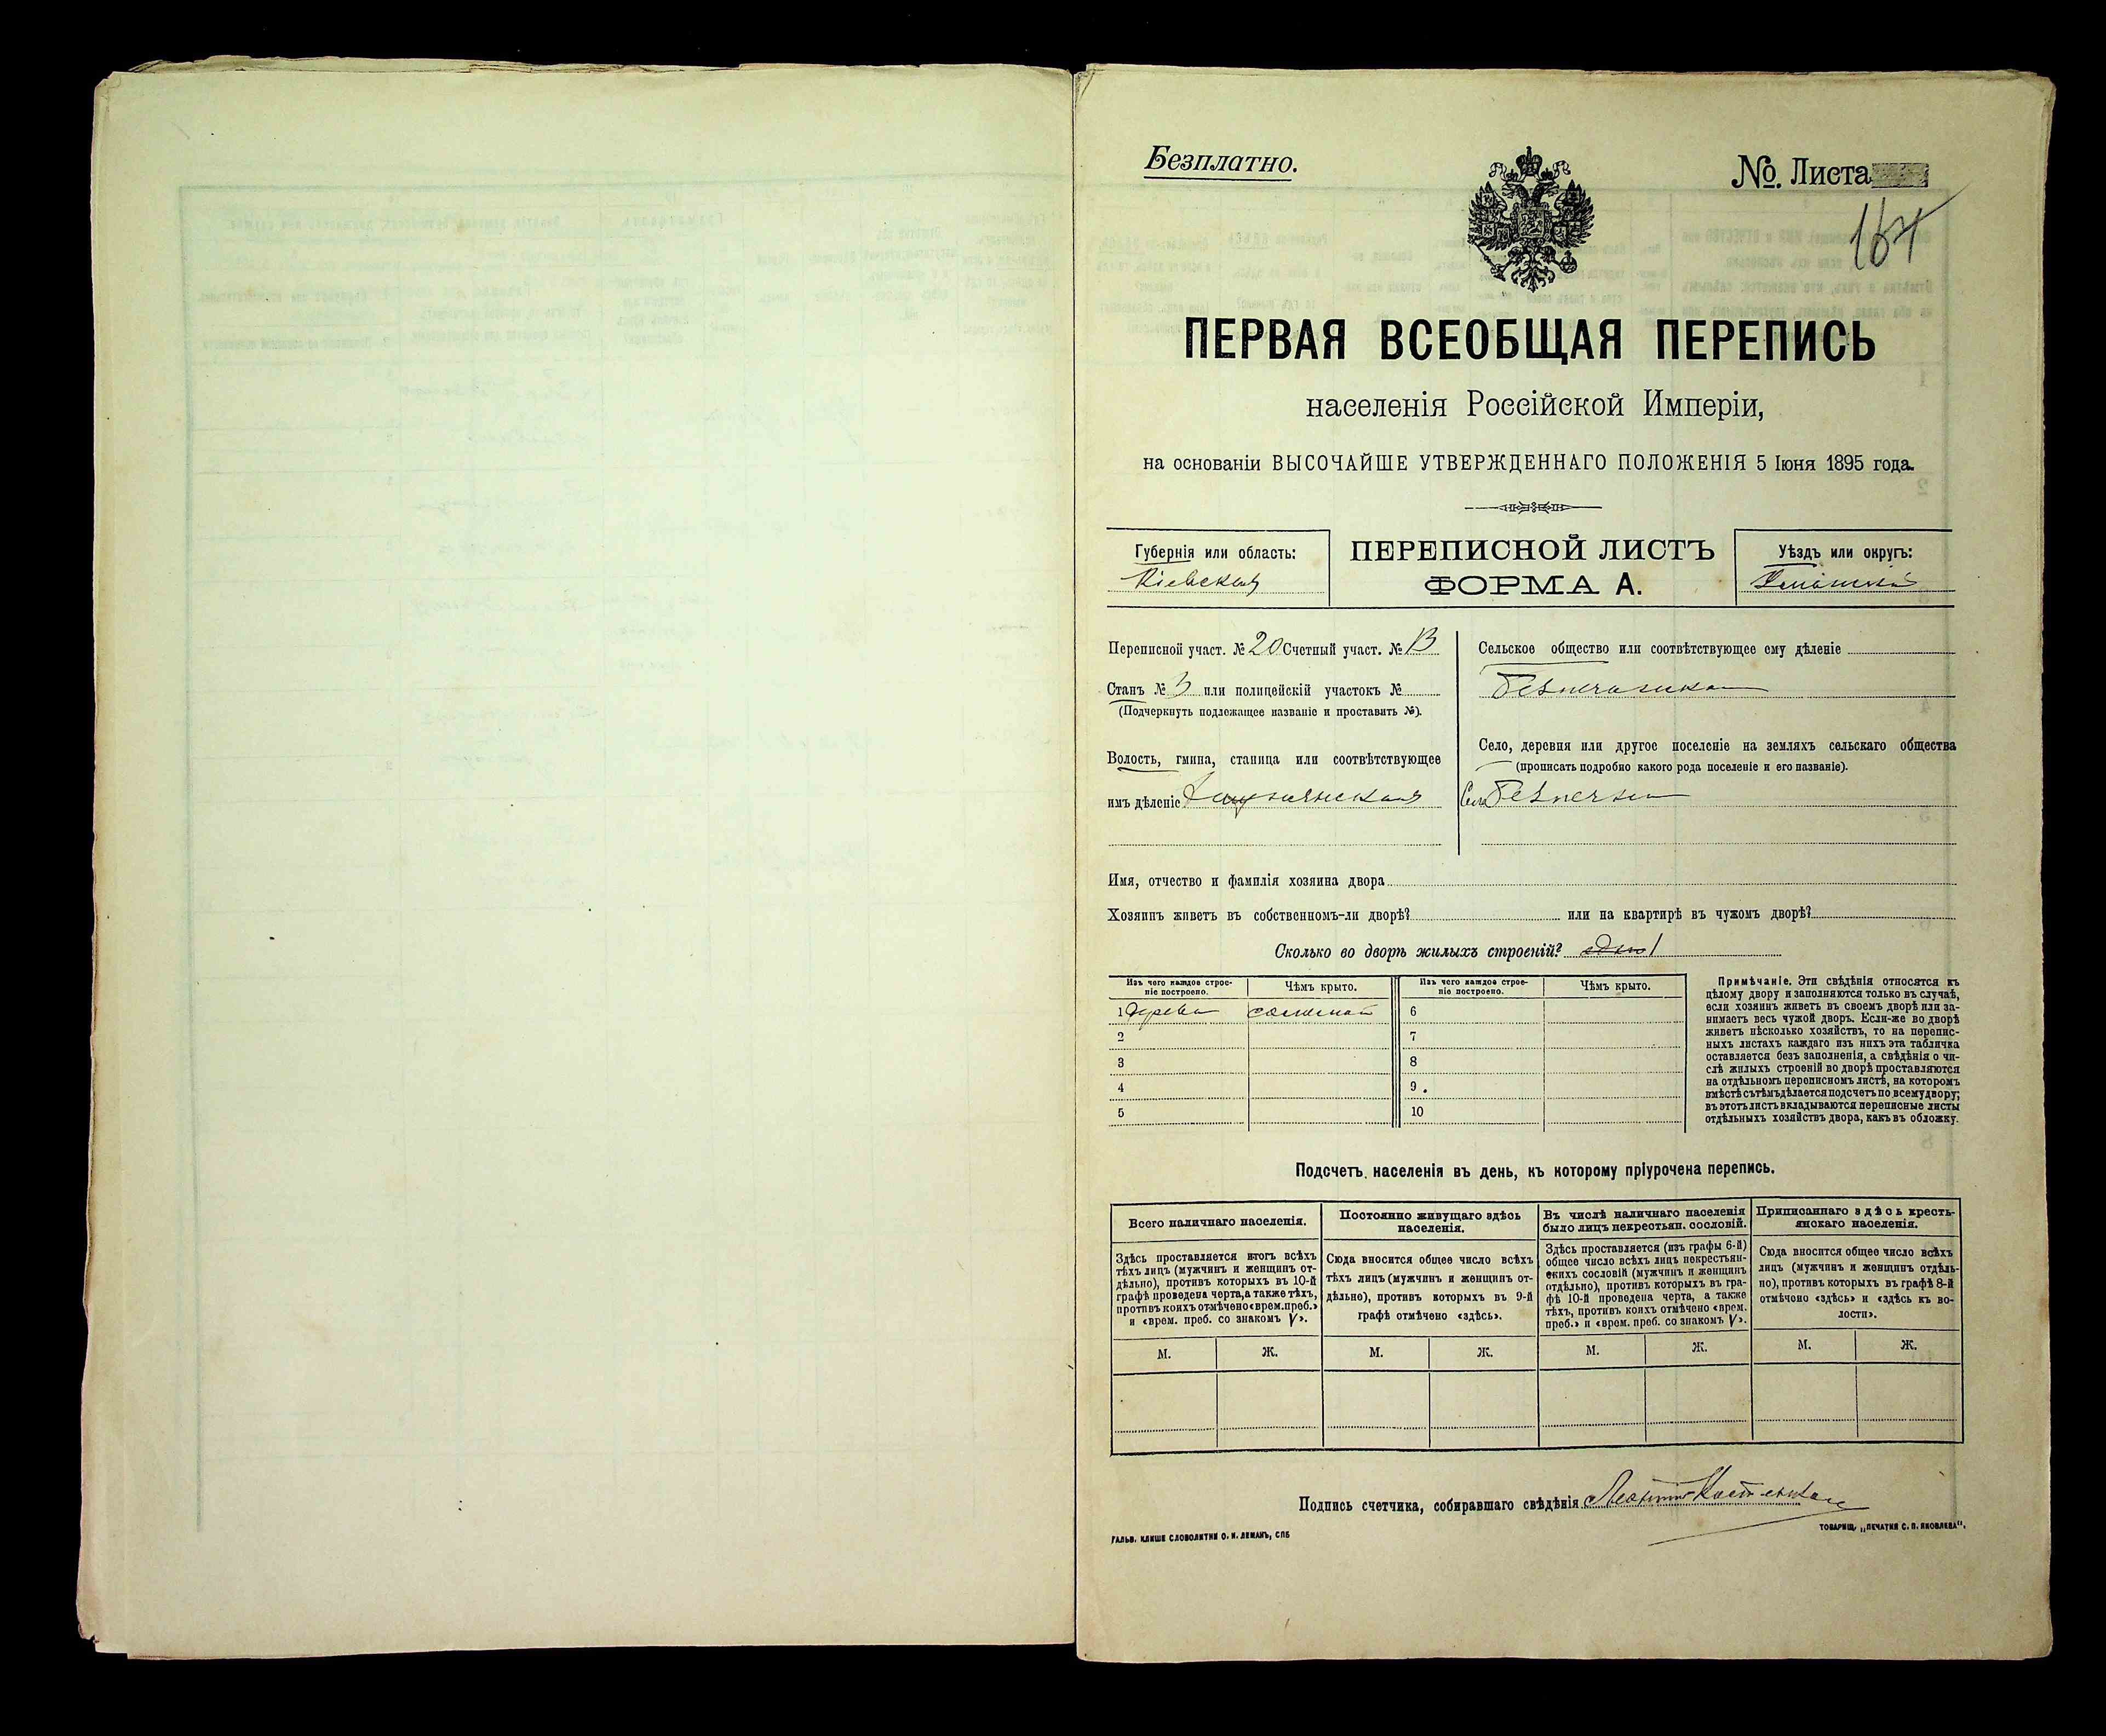 Безплатно.
№. Листа
164
ПЕРВАЯ ВСЕОБЩАЯ ПЕРЕПИСЬ
населенія Россійской Имперіи,
на основаніи ВЫСОЧАЙШЕ УТВЕРЖДЕННАГО ПОЛОЖЕНІЯ 5 Іюня 1895 года.
Губернія или область:
Кіевская
ПЕРЕПИСНОЙ ЛИСТЪ
ФОРМА А.
Уѣздъ или округъ:
Переписной участ. № 20 Счетный участ. №
Станъ № 3 или полицейскій участокъ №
(Подчеркнуть подлежащее названіе и проставить №).
Волость, гмина, станица или соотвѣтствующее
имъ дѣленіе
Сельское общество или соотвѣтствующее ему дѣленіе
Село, деревня или другое поселеніе на земляхъ сельскаго общества
(прописать подробно какого рода поселеніе и его названіе).
Село
Имя, отчество и фамилія хозяина двора
Хозяинъ живетъ въ собственномъ-ли дворѣ? или на квартирѣ въ чужомъ дворѣ?
Сколько во дворѣ жилыхъ строеній? 1
Изъ чего каждое строе-
ніе построено.
Чѣмъ крыто.
Изъ чего каждое строе-
ніе построено.
Чѣмъ крыто.
1 дерева соломой 6
2 7
3 8
4 9
5 10
Примѣчаніе. Эти свѣдѣнія относятся къ
цѣлому двору и заполняются только въ случаѣ,
если хозяинъ живетъ въ своемъ дворѣ или за-
нимаетъ весь чужой дворъ. Если-же во дворѣ
живетъ нѣсколько хозяйствъ, то на перепис-
ныхъ листахъ каждаго изъ нихъ эта табличка
оставляется безъ заполненія, а свѣдѣнія о чи-
слѣ жилыхъ строеній во дворѣ проставляются
на отдѣльномъ переписномъ листѣ, на которомъ
вмѣстѣ съ тѣмъ дѣлается подсчетъ по всему двору;
въ этотъ листъ вкладываются переписные листы
отдѣльныхъ хозяйствъ двора, какъ въ обложку.
Подсчетъ населенія въ день, къ которому пріурочена перепись.
Всего наличнаго населенія.
Здѣсь проставляется итогъ всѣхъ
тѣхъ лицъ (мужчинъ и женщинъ от-
дѣльно), противъ которыхъ въ 10-й
графѣ проведена черта, а также тѣхъ,
противъ коихъ отмѣчено «врем. преб.»
и «врем. преб. со знакомъ V».
М. Ж.
Постоянно живущаго здѣсь
населенія.
Сюда вносится общее число всѣхъ
тѣхъ лицъ (мужчинъ и женщинъ от-
дѣльно), противъ которыхъ въ 9-й
графѣ отмѣчено «здѣсь».
М. Ж.
Въ числѣ наличнаго населенія
было лицъ некрестьян. сословій.
Здѣсь проставляется (изъ графы 6-й)
общее число всѣхъ лицъ некрестьян-
скихъ сословій (мужчинъ и женщинъ
отдѣльно), противъ которыхъ въ гра-
фѣ 10-й проведена черта, а также
тѣхъ, противъ коихъ отмѣчено «врем.
преб.» и «врем. преб. со знакомъ V».
М. Ж.
Приписаннаго здѣсь кресть-
янскаго населенія.
Сюда вносится общее число всѣхъ
лицъ (мужчинъ и женщинъ отдѣль-
но), противъ которыхъ въ графѣ 8-й
отмѣчено «здѣсь» и «здѣсь къ во-
лости».
М. Ж.
Подпись счетчика, собиравшаго свѣдѣнія
ГАЛЬВ. КЛИШЕ СЛОВОЛИТНИ О. И. ЛЕМАНЪ, СПБ
ТОВАРИЩ. „ПЕЧАТНЯ С. П. ЯКОВЛЕВА".